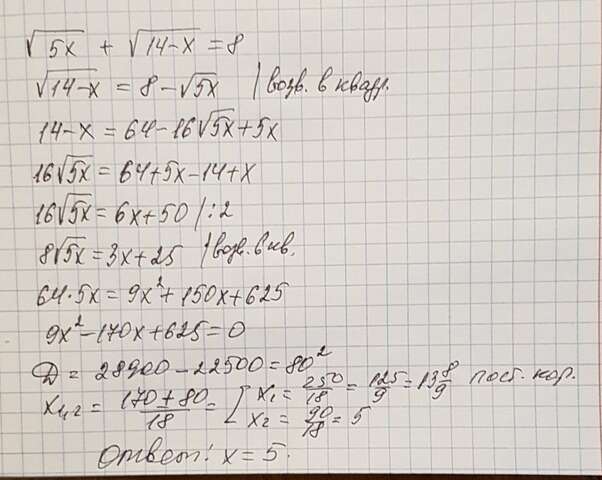 √5x + √14-x = 8
√14-x = 8 - √5x | возв. в квадр.
14-x = 64-16√5x+5x
16√5x = 64+5x-14+x
16√5x = 6x+50 |:2
8√5x = 3x+25 | возв. в кв.
64·5x = 9x²+150x+625
9x²-170x+625=0
D = 28900-22500=80²
x₁,₂ = (170±80)/18 = [ x₁ = 250/18 = 125/9 = 13 8/9 пост. кор.
x₂ = 90/18 = 5
Ответ: x = 5.